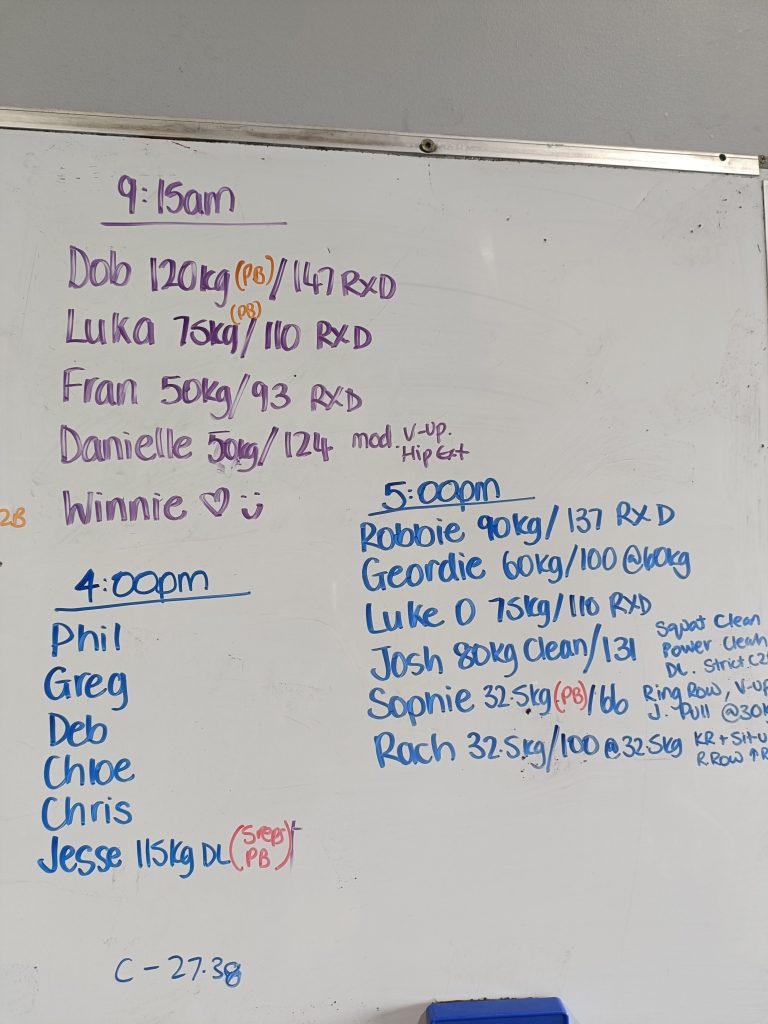 9:15am
Dob 120kg (PB) / 147 RXD
Luka 75kg (PB) / 110 RXD
Fran 50kg / 93 RXD
Danielle 50kg / 124 mod. V-up.
Hip Ext
2B
Winnie ♡ ü
4:00pm
Phil
Greg
Deb
Chloe
Chris
Jesse 115kg DL (5reps PB)
5:00pm
Robbie 90kg / 137 RXD
Geordie 60kg/100 @60kg
Luke O 75kg / 110 RXD
Josh 80kg Clean / 131
Squat Clean
Power Clean
DL. Strict
Sophie 32.5kg (PB) / 66
Ring Row, V-up
J. Pull @30k
Rach 32.5kg/100 @ 32.5kg
KR + Sit-u
R.Row ↑
C - 27.38